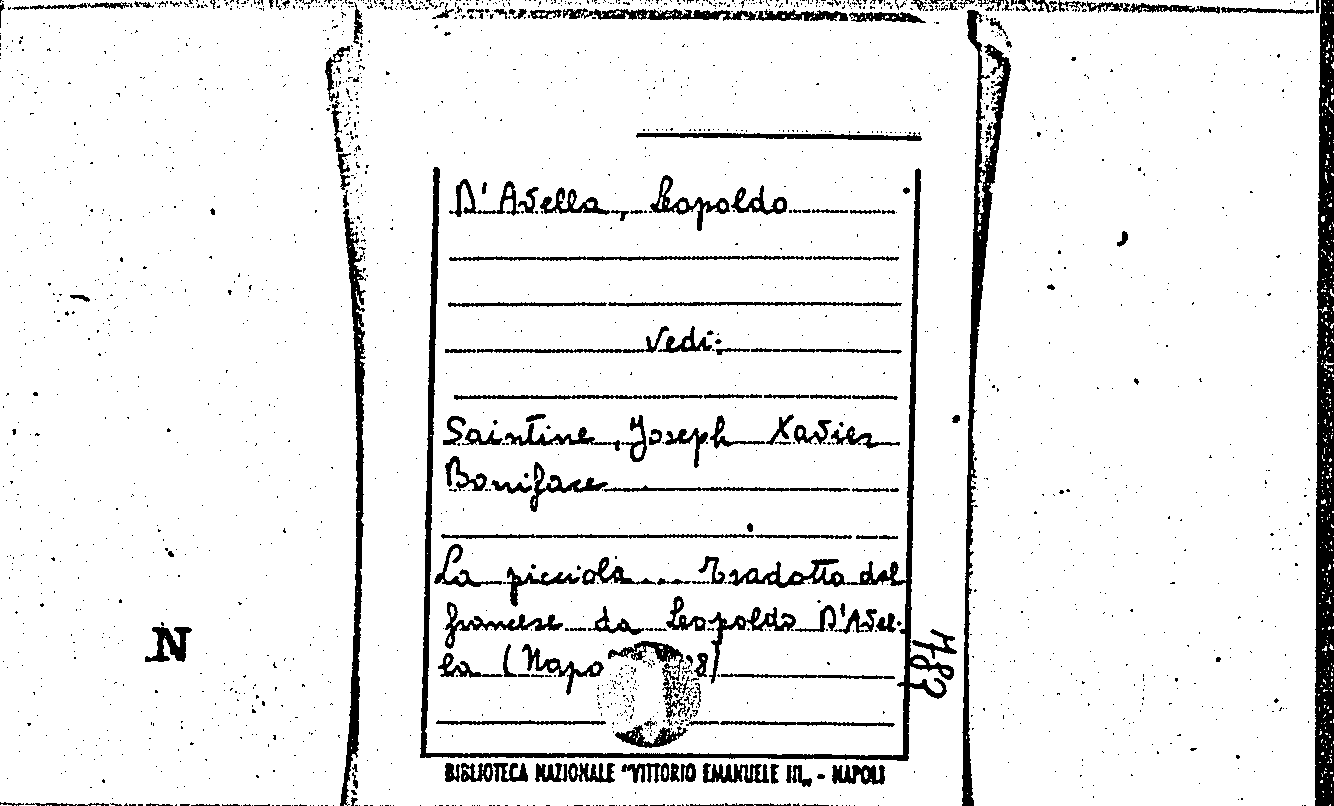 D'Avella, Leopoldo
vedi:
Saintine, Joseph Xavier
Boniface
La picciola... Tradotta dal
francese da Leopoldo D'Avel-
la (Napo 8)
N
BIBLIOTECA NAZIONALE "VITTORIO EMANUELE III„ - NAPOLI